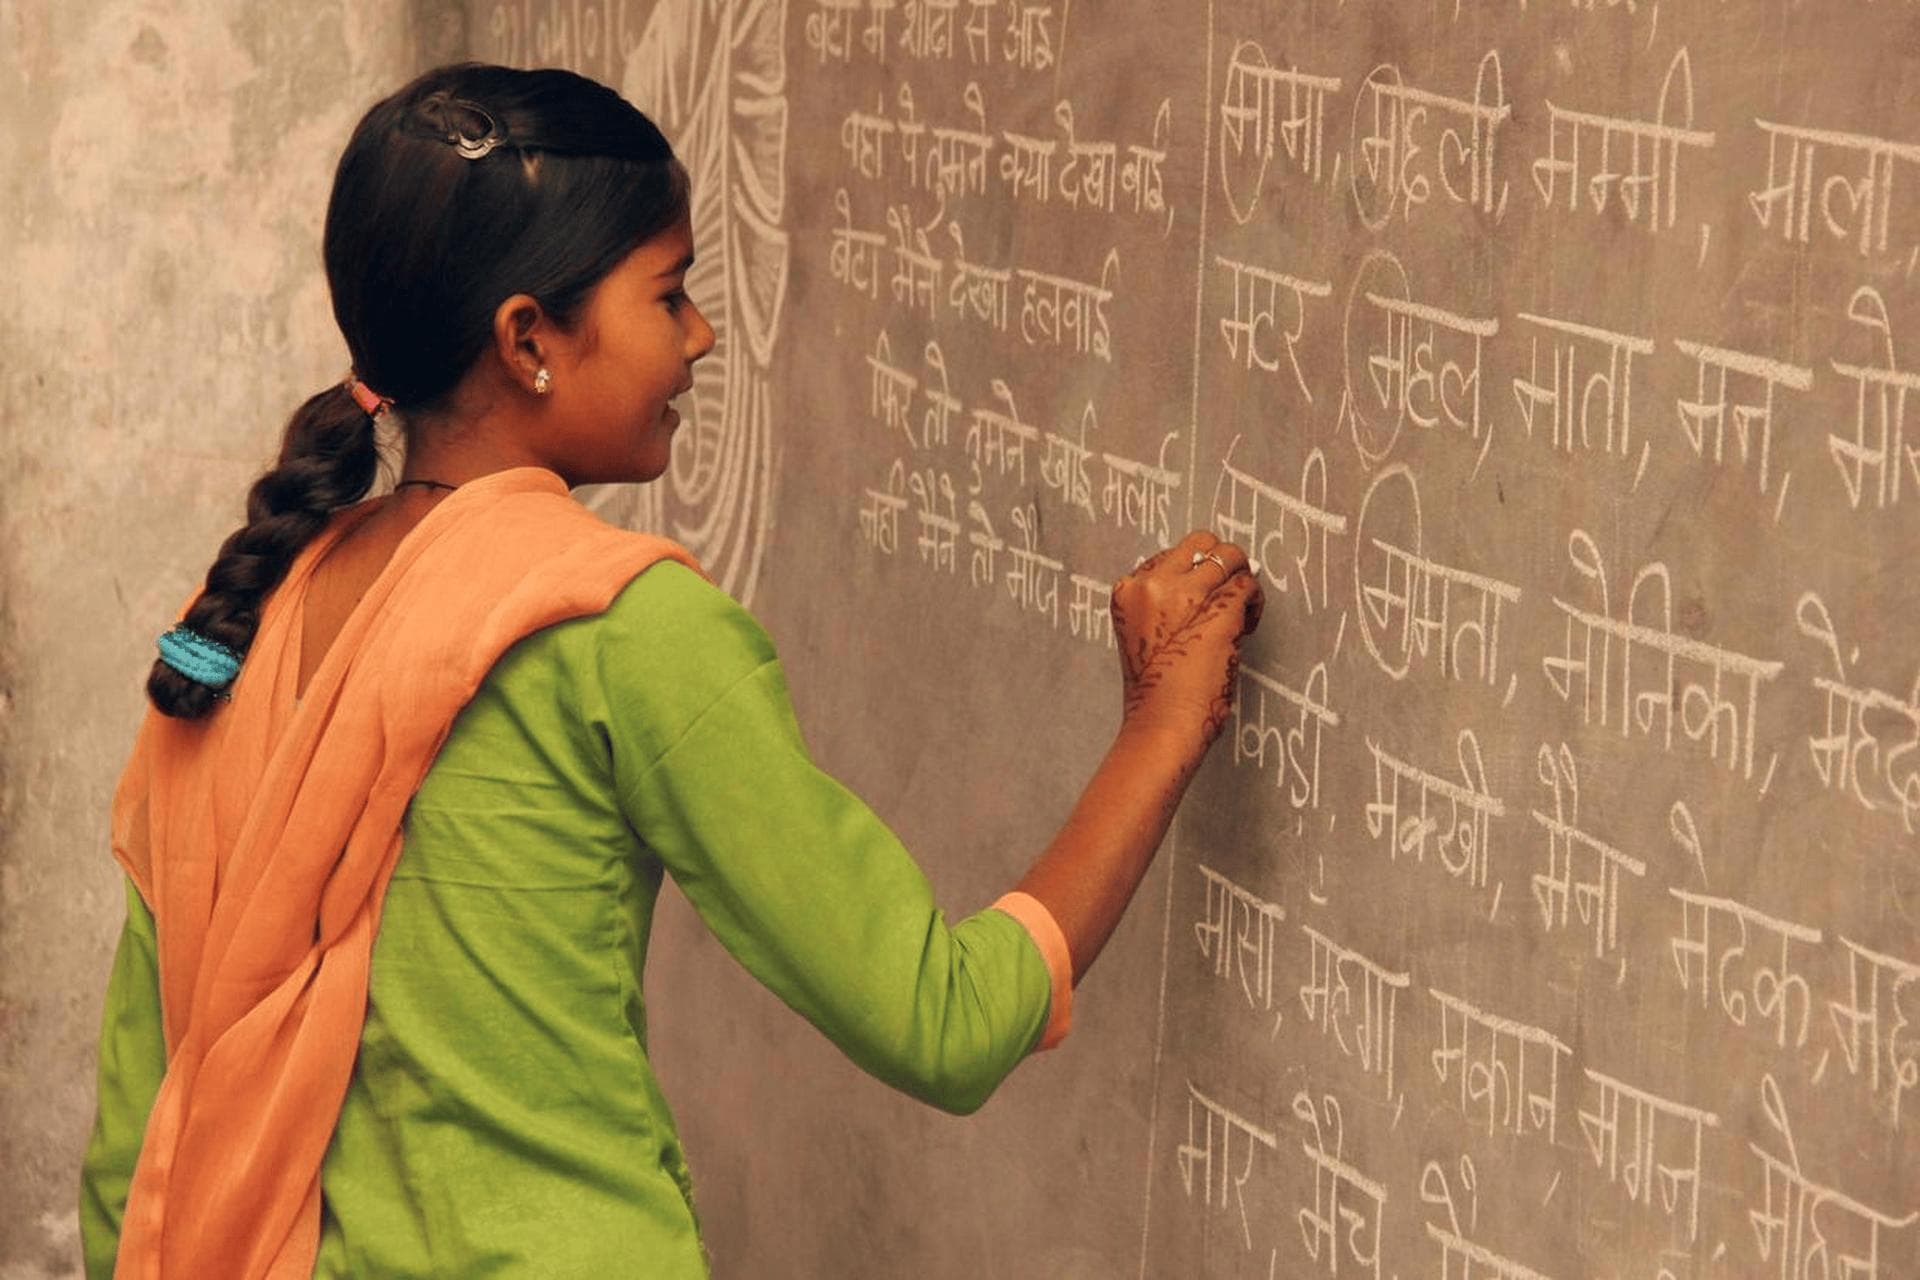 बेटा मैं शादी से आई
वहां पे तुमने क्या देखा बाई,
बेटा मैंने देखा हलवाई
फिर तो तुमने खाई मलाई
नहीं मैंने तो मौज मना
मामा, मछली, मम्मी, माला,
मटर, महल, माता, मन,
मटरी, ममता, मोनिका,
मकड़ी, मक्खी, मैना, मेंढक,
मासा, महगा, मकान, मगन, मोहन
मार, मैच,